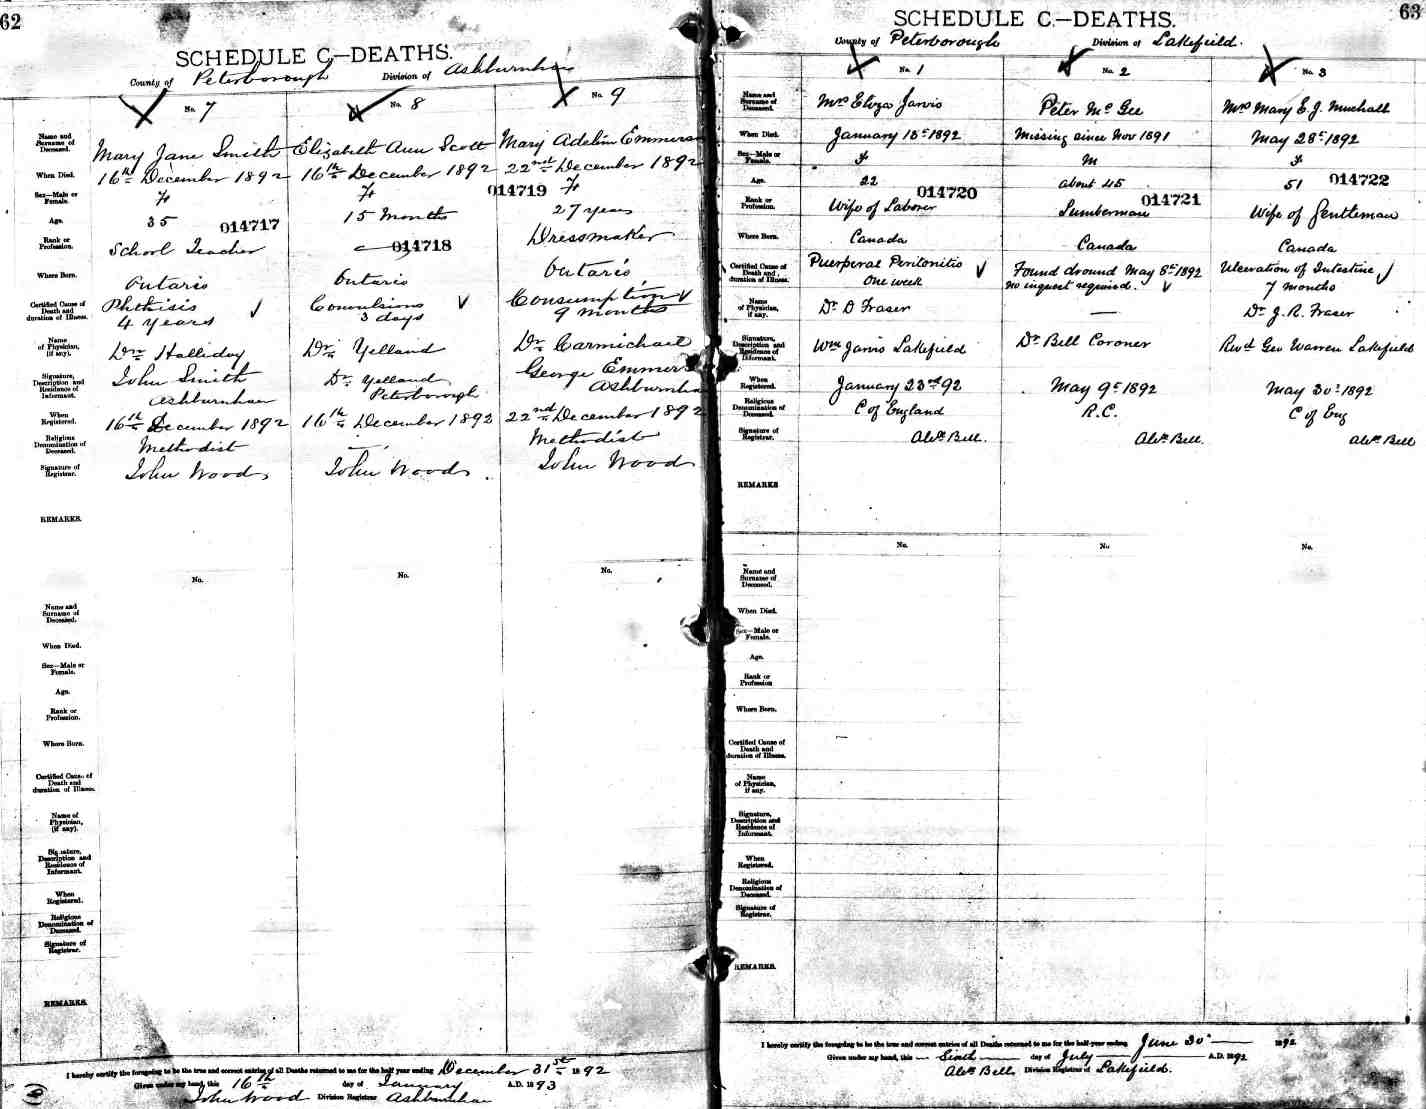 62
SCHEDULE C.—DEATHS.
County of Peterborough Division of Ashburnham
No. 7 No. 8 No. 9
Name and Surname of Deceased. Mary Jane Smith Elizabeth Ann Scott Mary Adeline Emmerson
When Died. 16th December 1892 16th December 1892 22nd December 1892
Sex—Male or Female. F F 014719 F
Age. 35 014717 15 Months 27 years
Rank or Profession. School Teacher — 014718 Dressmaker
Where Born. Ontario Ontario Ontario
Certified Cause of Death and duration of Illness. Phthisis 4 years Convulsions 3 days Consumption 9 months
Name of Physician, (if any). Dr. Halliday Dr. Yelland Dr. Carmichael
Signature, Description and Residence of Informant. John Smith Ashburnham Dr. Yelland Peterborough George Emmerson Ashburnham
When Registered. 16th December 1892 16th December 1892 22nd December 1892
Religious Denomination of Deceased. Methodist — Methodist
Signature of Registrar. John Wood John Wood John Wood
REMARKS.
No. No. No.
Name and Surname of Deceased.
When Died.
Sex—Male or Female.
Age.
Rank or Profession.
Where Born.
Certified Cause of Death and duration of Illness.
Name of Physician, (if any).
Signature, Description and Residence of Informant.
When Registered.
Religious Denomination of Deceased.
Signature of Registrar.
REMARKS.
I hereby certify the foregoing to be the true and correct entries of all Deaths returned to me for the half year ending December 31st 1892
Given under my hand, this 16th day of January A.D. 1893
John Wood Division Registrar Ashburnham
63
SCHEDULE C.—DEATHS.
County of Peterborough Division of Lakefield.
No. 1 No. 2 No. 3
Name and Surname of Deceased. Mrs Eliza Jarvis Peter Mc Gee Mrs Mary E. J. Muchall
When Died. January 18th 1892 Missing since Nov 1891 May 28th 1892
Sex—Male or Female. F M F
Age. 22 014720 about 45 014721 51 014722
Rank or Profession. Wife of Laborer Lumberman Wife of Gentleman
Where Born. Canada Canada Canada
Certified Cause of Death and duration of Illness. Puerperal Peritonitis One week Found drowned May 8th 1892 no inquest required. Ulceration of Intestine 7 months
Name of Physician, if any. Dr D Fraser — Dr J. R. Fraser
Signature, Description and Residence of Informant. Wm Jarvis Lakefield Dr Bell Coroner Revd Geo Warren Lakefield
When Registered. January 23rd 92 May 9th 1892 May 30th 1892
Religious Denomination of Deceased. C of England R.C. C of Eng
Signature of Registrar. Alexr Bell. Alexr Bell. Alexr Bell
REMARKS
No. No. No.
Name and Surname of Deceased.
When Died.
Sex—Male or Female.
Age.
Rank or Profession
Where Born.
Certified Cause of Death and duration of Illness.
Name of Physician, if any.
Signature, Description and Residence of Informant.
When Registered.
Religious Denomination of Deceased.
Signature of Registrar.
REMARKS.
I hereby certify the foregoing to be the true and correct entries of all Deaths returned to me for the half-year ending June 30th 1892
Given under my hand, this Sixth day of July A.D. 1892
Alexr Bell Division Registrar of Lakefield.